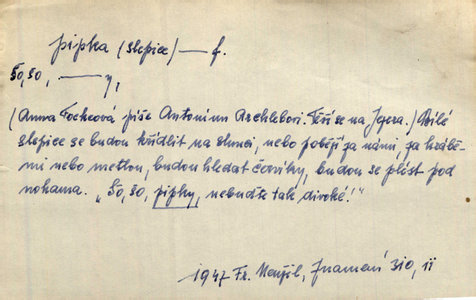 pipka (slepice) — f.
So,so, — y,
(Anna Focheová píše Antonínu Archlebovi. Těší se na Jgora.) Bílé
slepice se budou křídlit na slunci, nebo poběží za námi, za hrábě-
mi nebo metlou, budou hledat červíky, budou se plést pod
nohama. „So, so, pipky, nebuďte tak divoké!"
1947 Fr. , Znamení 310, ii